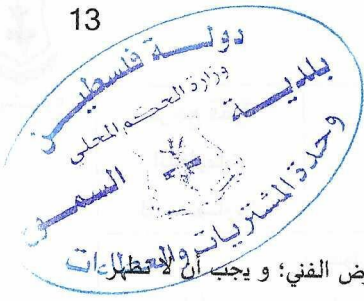 13
دولة فلسطين
وزارة الحكم المحلي
بلدية السموع
وحدة المشتريات والعطاءات
ض الفني؛ و يجب أن لا تظهر